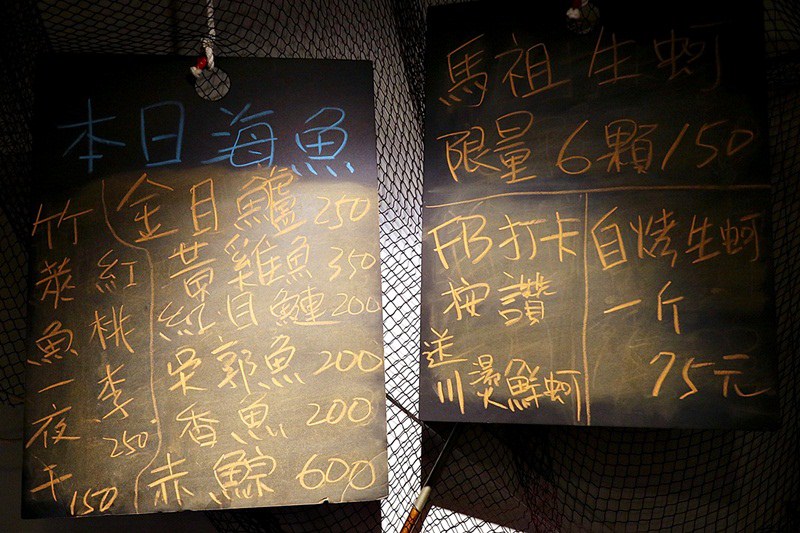 本日海魚
金目鱸 250
黃雞魚 350
紅目鰱 200
吳郭魚 200
香魚 200
赤鯮 600
紅桃李 250
竹筴魚一夜干 150
馬祖生蚵
限量6顆/150
FB打卡
按讚
送
川燙鮮蚵
自烤生蚵
一斤
75元